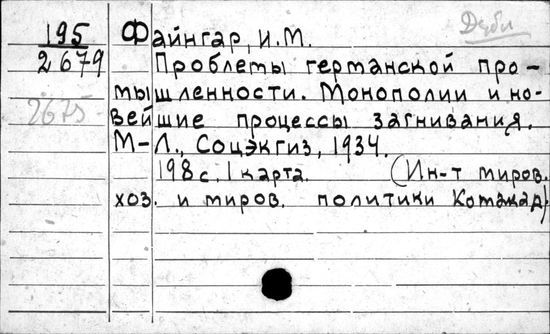 Дубл
195
2679
2675
Файнгар, И.М.
Проблемы германской про-
мышленности. Монополии и но-
вейшие процессы загнивания.
М-Л., Соцэкгиз, 1934.
198 с. 1 карта. (Ин-т миров.
хоз. и миров. политики Комакад)